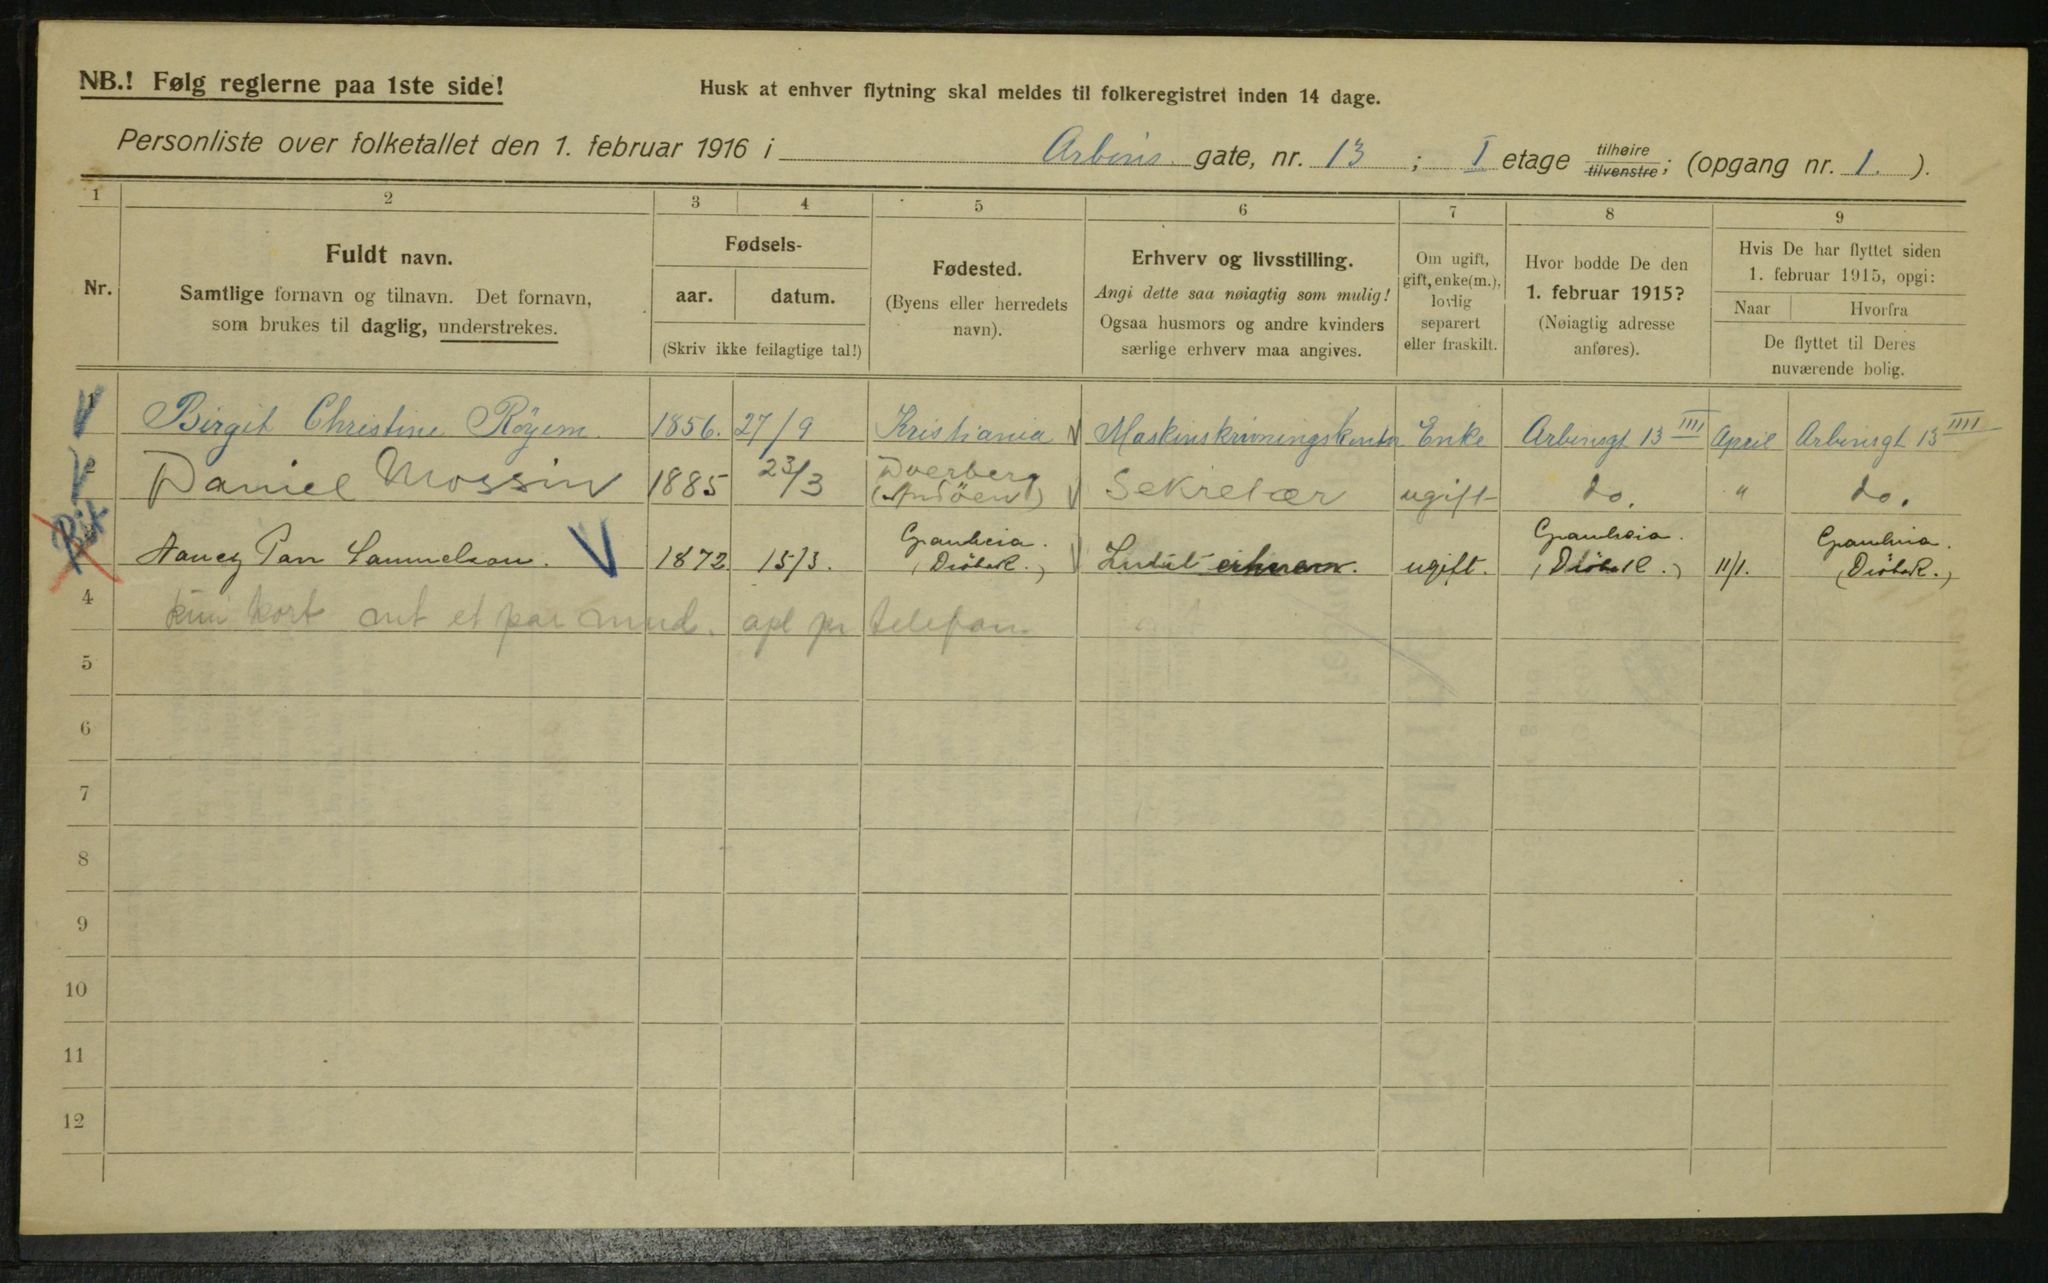 NB.! Følg reglerne paa 1ste side!
Husk at enhver flytning skal meldes til folkeregistret inden 14 dage.
Personliste over folketallet den 1. februar 1916 i Arbins gate, nr. 13 ; I etage tilhøire tilvenstre; (opgang nr. 1. ).
1 2 3 4 5 6 7 8 9
Nr.
Fuldt navn.
Samtlige fornavn og tilnavn. Det fornavn,
som brukes til daglig, understrekes.
Fødsels-
aar. datum.
(Skriv ikke feilagtige tal!)
Fødested.
(Byens eller herredets
navn).
Erhverv og livsstilling.
Angi dette saa nøiagtig som mulig!
Ogsaa husmors og andre kvinders
særlige erhverv maa angives.
Om ugift,
gift, enke(m.),
lovlig
separert
eller fraskilt.
Hvor bodde De den
1. februar 1915?
(Nøiagtig adresse
anføres).
Hvis De har flyttet siden
1. februar 1915, opgi:
Naar Hvorfra
De flyttet til Deres
nuværende bolig.
Birgit Christine Röyem. 1856. 27/9 Kristiania Maskinskrivningskontor Enke Arbinsgt 13 IIII April Arbinsgt 13 IIII
Daniel Mossin 1885 23/3 Dverberg (Andöen) Sekretær ugift do. " do.
Nancy Samuelson. 1872. 15/3. (Dröbak.) ugift. (Dröbak.) 11/1. (Dröbak.)
4 kun kort et par telefon
5
6
7
8
9
10
11
12